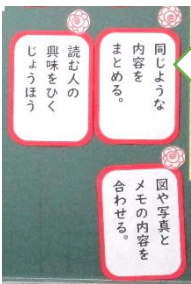 同じような
内容を
まとめる。
読む人の
興味をひく
じょうほう
図や写真と
メモの内容を
合わせる。